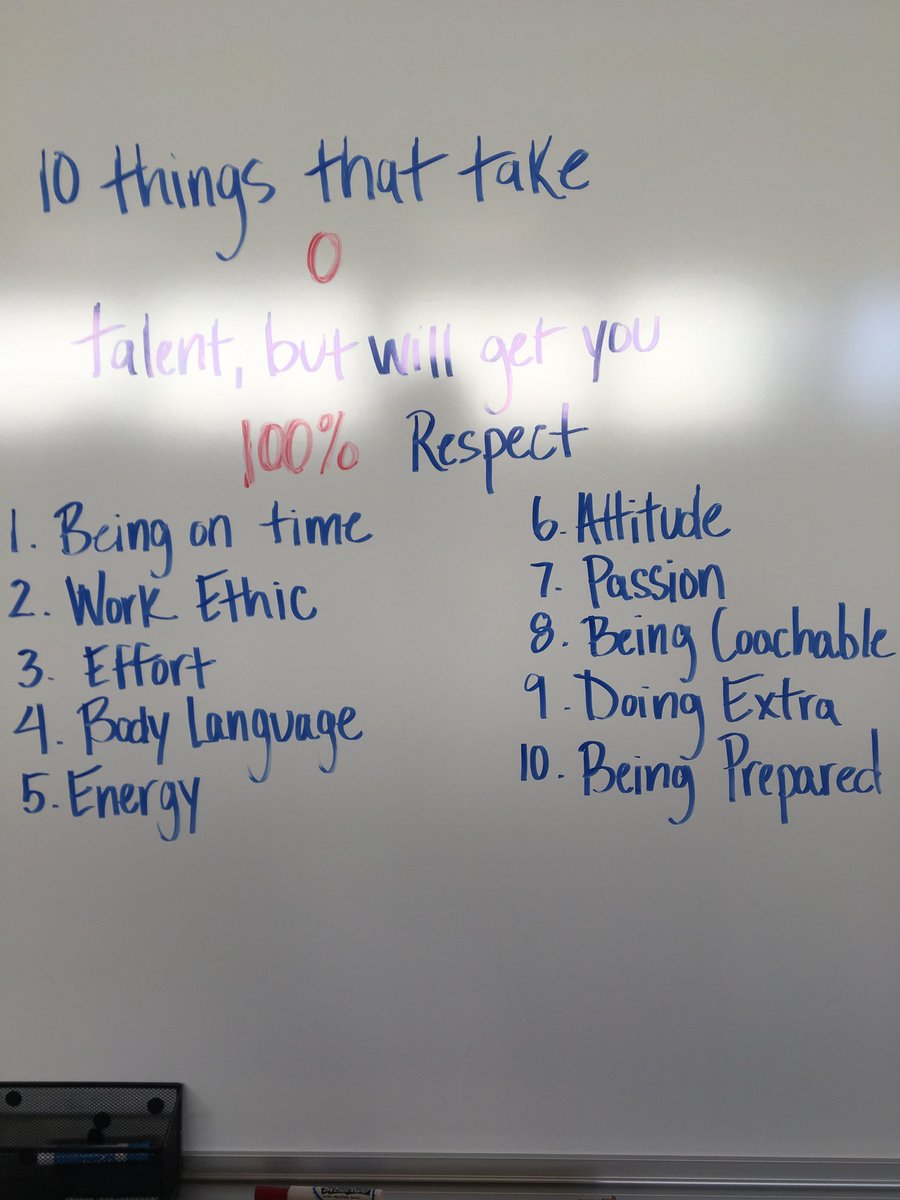 10 things that take
0
talent, but will get you
100% Respect
1. Being on time
2. Work Ethic
3. Effort
4. Body Language
5. Energy
6. Attitude
7. Passion
8. Being Coachable
9. Doing Extra
10. Being Prepared